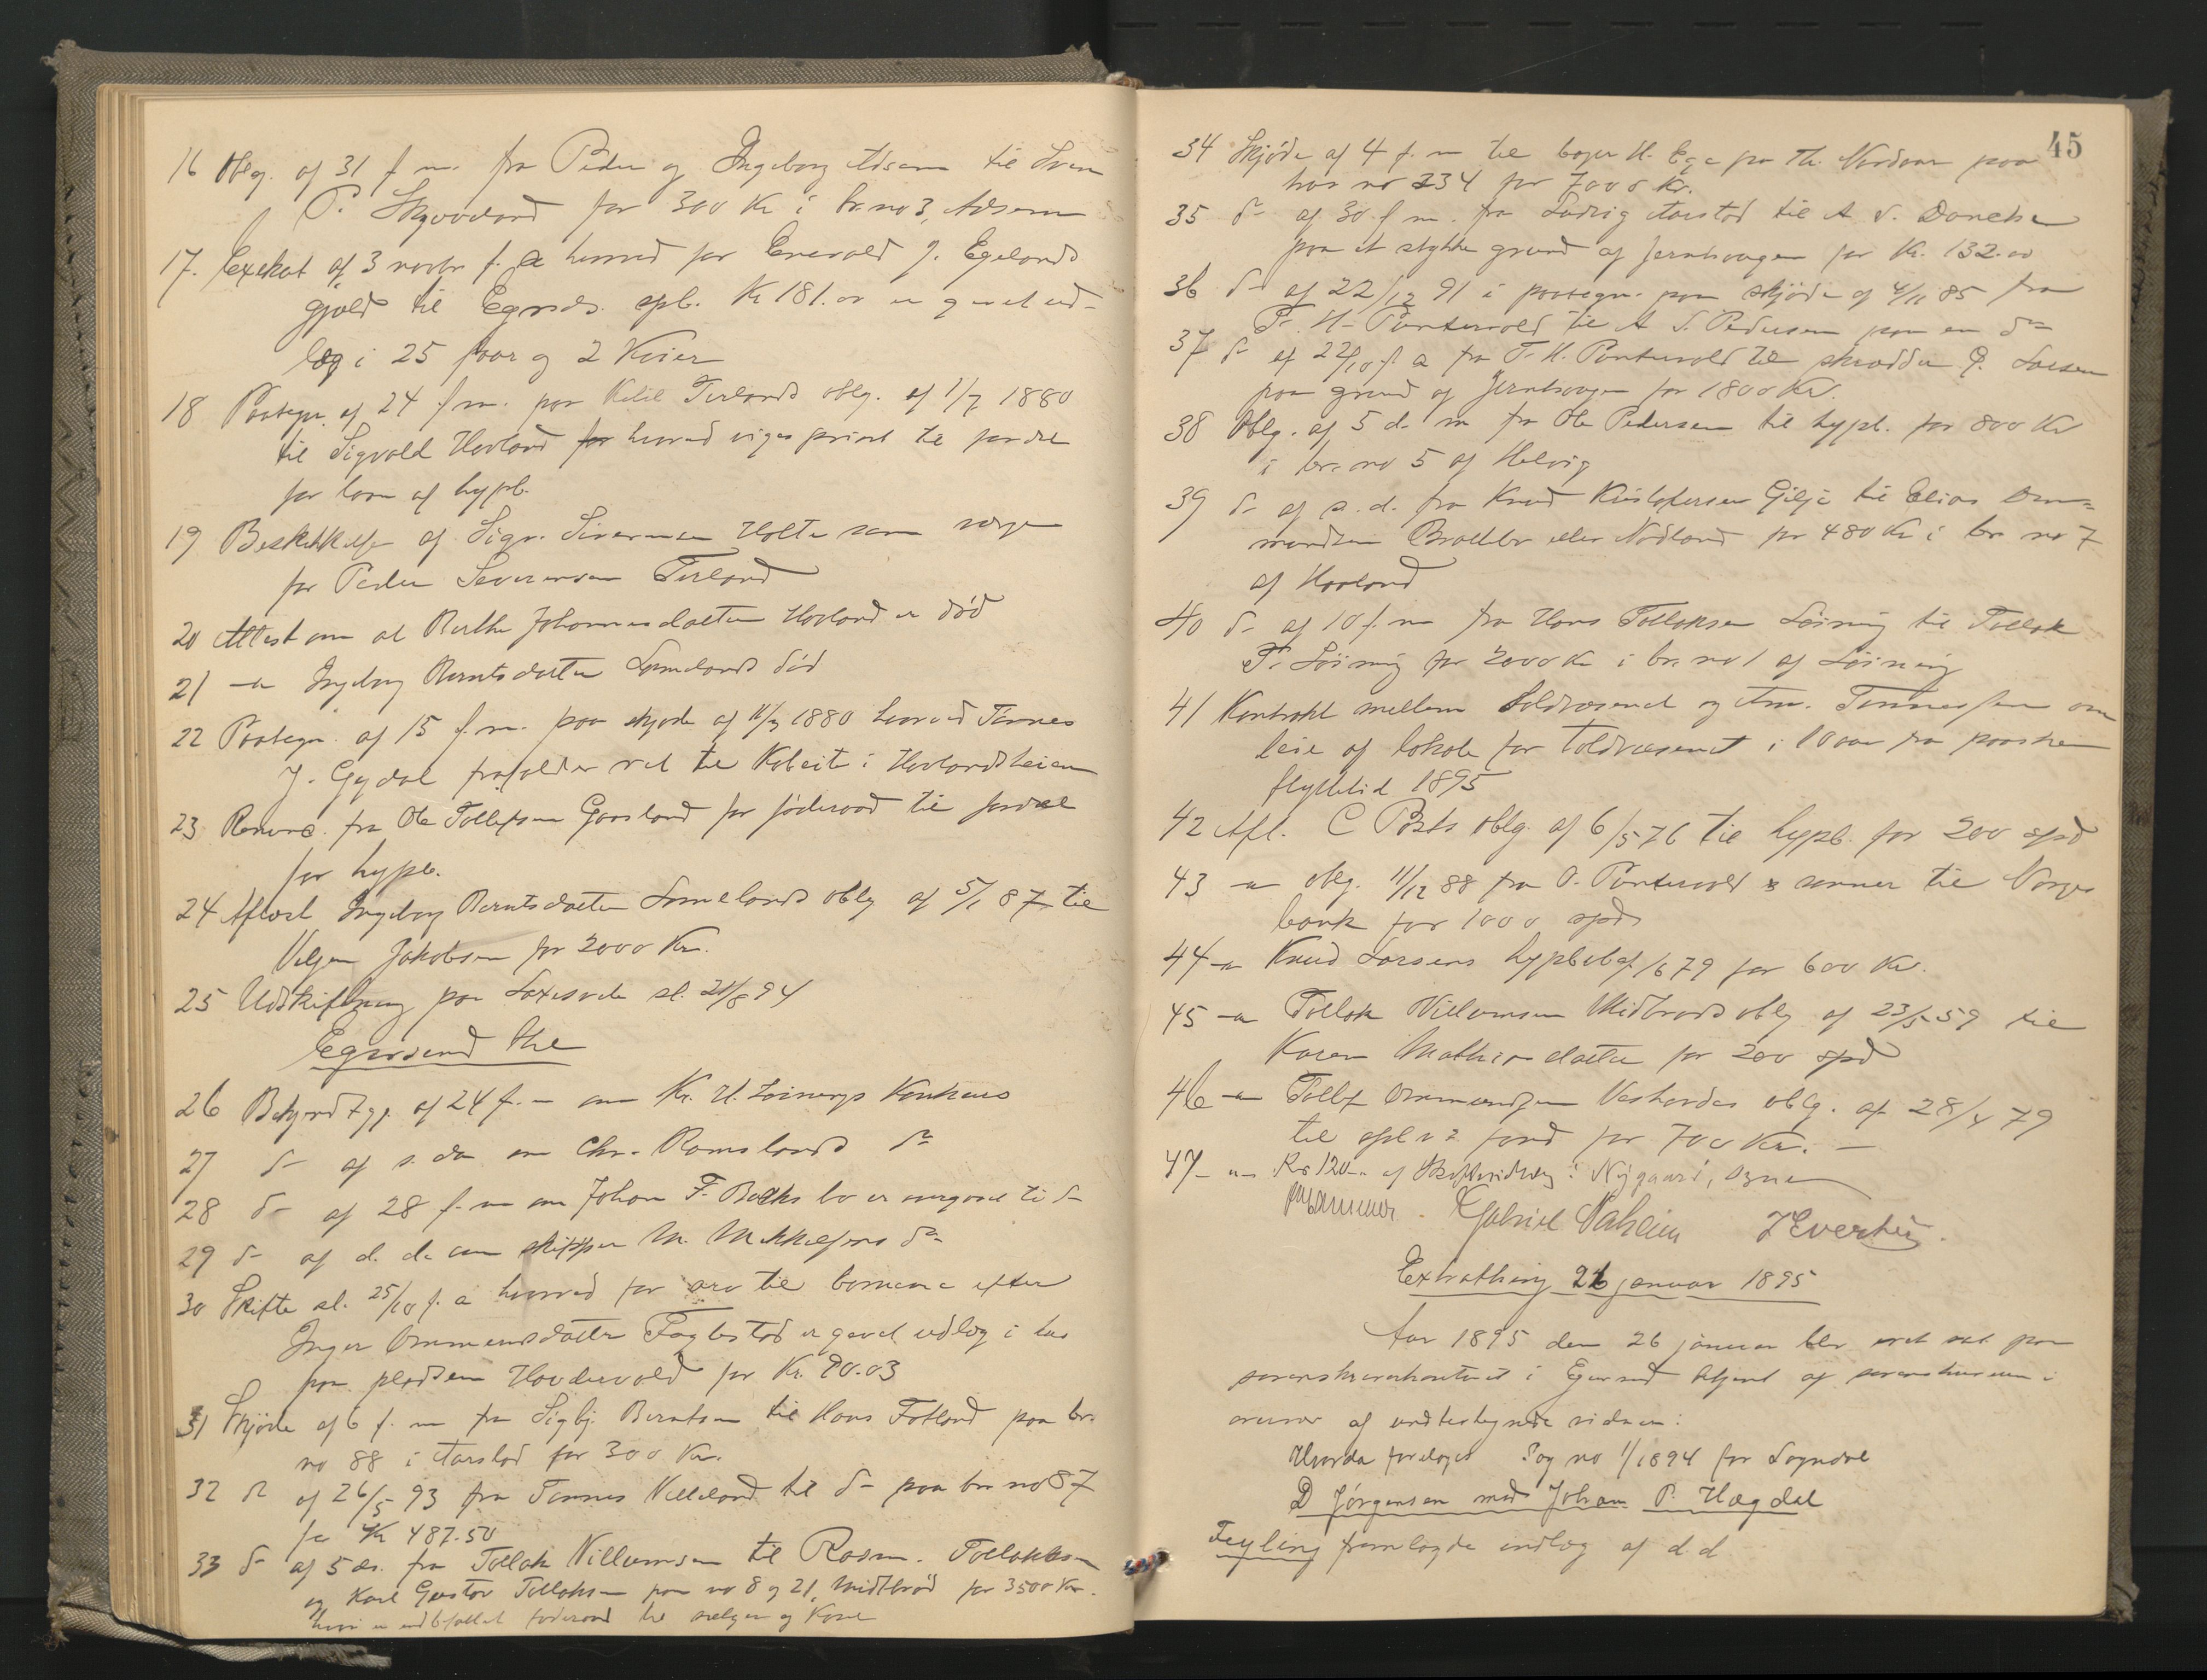 16 Oblg. af 31 f. m. fra Peder og Ingeborg Adsem til Sven
P. Skjævdand for 300 Kr i br. no 3, Adsem
17. Exekut af 3 novbr f. a hvorved for Enevald J. Egelands
gjæld til Egersds. spb. Kr 181.00 er gjort ud-
læg i 25 faar og 2 Kvier
18 Paategn. af 24 f. m. paa Ketil Terlands oblg. af 1/7 1880
til Sigvald Hovland hvorved viges priori til fordel
for laan af hypb.
19 Beskikkelse af Sigv. Siversen Holte som verge
for Peder Severensen Terland
20 Attest om at Berthe Johannesdatter Hovland er død
21 -"- Ingeborg Berntsdatter Lomelands død
22 Paategn. af 15 f. m. paa skjøde af 11/3 1880 hvorved Tønnes
J. Gydal frafalder ret til Kobeite i Hovlandsheien
23 Renunc. fra Ole Tollefsen Gaasland for føderaad til fordel
for hypb.
24 Aflæst Ingeborg Berntsdatter Lomelands oblg af 5/1 87 til
Veljen Jakobsen for 2000 Kr.
25 Udskiftning paa Laxesvela sl. 21/8 94
Egersund Ths
26 Bekjendtgj. af 24 f. m om Kr. H. Løinings Konkurs
27 do af s. da om Chr. Ramslands do
28 do af 28 f. m om Johan F. Becks bo er overgaaet til do
29 do af d. da om skipper M. Mikkelsens do
30 Skifte sl. 25/10 f. a hvorved for arv til børnene efter
Inger Ommundsdatter Fuglestad er gjort udlæg i hus
paa pladsen Hovdervold for Kr. 90.03
31 Skjøde af 6 f. m fra Sigbj. Berntsen til Hans Fotland paa br.
no 88 i Aarstad for 300 Kr.
32 do af 26/5 93 fra Tønnes Velleland til do paa br no 87
for Kr 487.50
33 do af 5 ds. fra Tollak Villumsen til Rasm. Tollaksen
og Karl Gustav Tollaksen paa no 8 og 21, Midtbrød for 3500 Kr.
hvori er indbefattet føderaad til sælgeren og Kone
45
34 Skjøde af 4 f. m til bager H. Ege fra Th. Nordaas paa
hus no 234 for 7000 Kr.
35 do af 30 f m. fra Ludvig Aarstad til A S. Danielsen
paa et stykke grund af Jernhaugen for Kr. 132.00
36 do af 22/12 91 i paategn. paa skjøde af 4/11 85 fra
T. H. Puntervold til A S. Pedersen paa en do
37 do af 22/10 f. a fra T. H. Puntervold til skrædder P. Larsen
paa grund af Jernhaugen for 1800 Kr.
38 Oblg. af 5 d. m fra Ole Pedersen til hypb. for 800 Kr
i br. no 5 af Helvig
39 do af s. d. fra Knud Kristofersen Gilje til Elias Om-
mundsen Brattebø eller Nødland for 480 Kr i br no 7
af Hovland
40 do af 10 f. m fra Hans Tollaksen Løining til Tollak
T. Løining for 2000 Kr i br. no 1 af Løining
41 Kontrakt mellem toldvæsenet og Am. Tønnessen om
leie af lokale for toldvæsenet i 10 aar fra paaske
flyttetid 1895
42 Afl. C Posts oblg. af 6/5 76 til hypb. for 200 spd
43 -"- oblg. 11/12 88 fra O. Puntervold & sønner til Norges
bank for 1000 spd
44 -"- Knud Larsens hypb. oblg /6 79 for 600 Kr.
45 -"- Tollak Villumsen Midbrøds oblg af 23/5 59 til
Karen Mathiasdatter for 200 spd
46 -"- Tollef Ommundsen Veshovdes oblg. af 28/4 79
til opl.v. fond for 700 Kr. —
47 -"- Kr 120 af Skifteudlæg i Nygaard, Ogne
Gabriel Vaheim J Evertsen.
Extrathing 26 januar 1895
Aar 1895 den 26 januar blev ret sat paa
sorenskriverkontoret i Egersund betjent af sorenskriveren i
overvær af undtertegnede vidner:
Hvorda foretoges Sag no 1/1894 for Sogndal
D Jørgensen mod Johan P. Hægdal
Feyling fremlagde indlæg af d.d